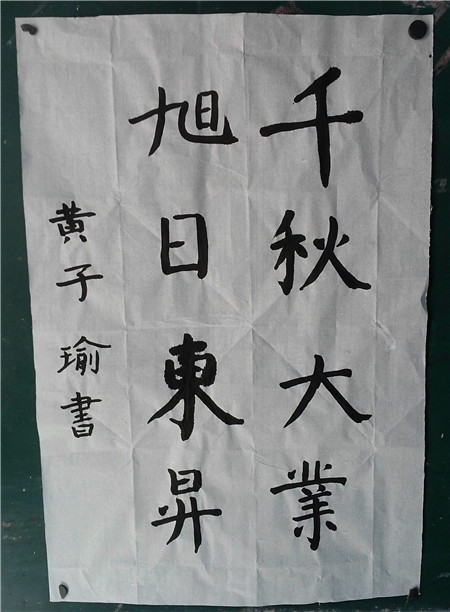 千秋大業
旭日東昇
黄子瑜書